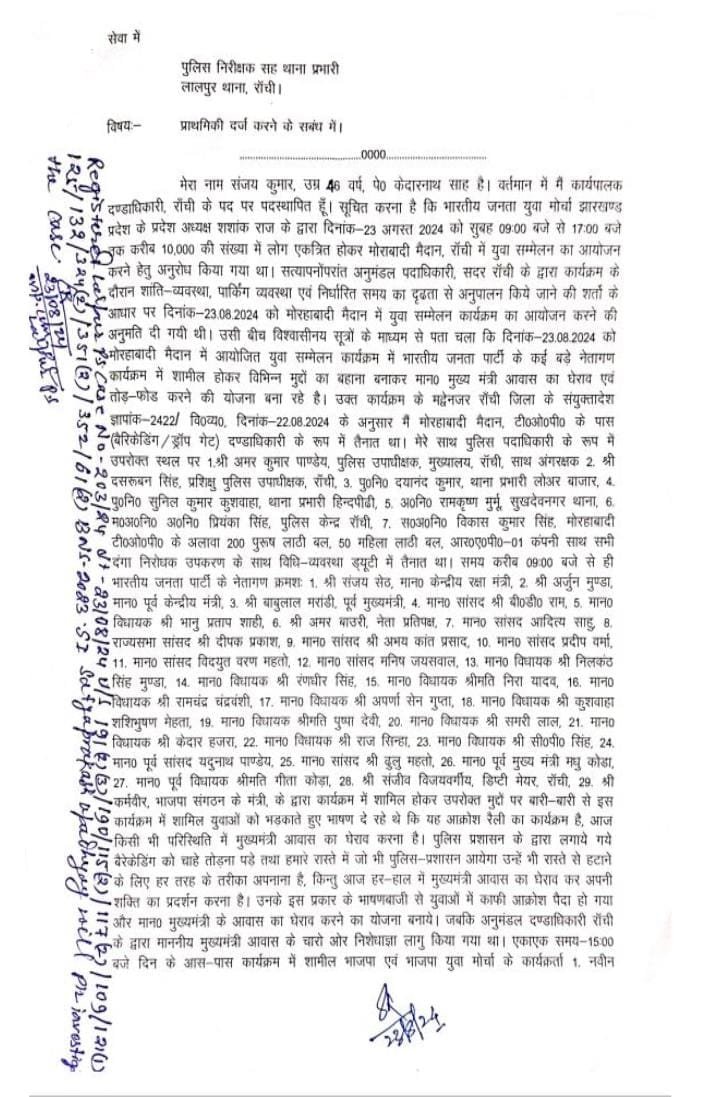 सेवा में
पुलिस निरीक्षक सह थाना प्रभारी
लालपुर थाना, राँची।
विषयः– प्राथमिकी दर्ज करने के सबंध में।
........................................0000........................................
मेरा नाम संजय कुमार, उम्र 46 वर्ष, पे0 केदारनाथ साह है। वर्तमान में मैं कार्यपालक
दण्डाधिकारी, राँची के पद पर पदस्थापित हूँ। सूचित करना है कि भारतीय जनता युवा मोर्चा झारखण्ड
प्रदेश के प्रदेश अध्यक्ष शशांक राज के द्वारा दिनांक–23 अगस्त 2024 को सुबह 09:00 बजे से 17:00 बजे
तक करीब 10,000 की संख्या में लोग एकत्रित होकर मोराबादी मैदान, राँची में युवा सम्मेलन का आयोजन
करने हेतु अनुरोध किया गया था। सत्यापनोंपरांत अनुमंडल पदाधिकारी, सदर राँची के द्वारा कार्यक्रम के
दौरान शांति–व्यवस्था, पार्किंग व्यवस्था एवं निर्धारित समय का दृढता से अनुपालन किये जाने की शर्तो के
आधार पर दिनांक–23.08.2024 को मोरहाबादी मैदान में युवा सम्मेलन कार्यक्रम का आयोजन करने की
अनुमति दी गयी थी। उसी बीच विश्वासीनय सूत्रों के माध्यम से पता चला कि दिनांक–23.08.2024 को
मोरहाबादी मैदान में आयोजित युवा सम्मेलन कार्यक्रम में भारतीय जनता पार्टी के कई बड़े नेतागण
कार्यक्रम में शामिल होकर विभिन्न मुद्दों का बहाना बनाकर मान0 मुख्य मंत्री आवास का घेराव एवं
तोड़–फोड करने की योजना बना रहे है। उक्त कार्यक्रम के मद्देनजर राँची जिला के संयुक्तादेश
ज्ञापांक–2422/ वि0व्य0, दिनांक–22.08.2024 के अनुसार मैं मोरहाबादी मैदान, टी0ओ0पी0 के पास
(बैरिकेडिंग/ड्रॉप गेट) दण्डाधिकारी के रूप में तैनात था। मेरे साथ पुलिस पदाधिकारी के रूप में
उपरोक्त स्थल पर 1.श्री अमर कुमार पाण्डेय, पुलिस उपाधीक्षक, मुख्यालय, राँची, साथ अंगरक्षक 2. श्री
दसरूबन सिंह, प्रशिक्षु पुलिस उपाधीक्षक, राँची, 3. पु0नि0 दयानंद कुमार, थाना प्रभारी लोअर बाजार, 4.
पु0नि0 सुनिल कुमार कुशवाहा, थाना प्रभारी हिन्दपीढी, 5. अ0नि0 रामकृष्ण मुर्मू, सुखदेवनगर थाना, 6.
म0अ0नि0 अ0नि0 प्रियंका सिंह, पुलिस केन्द्र राँची, 7. स0अ0नि0 विकास कुमार सिंह, मोरहाबादी
टी0ओ0पी0 के अलावा 200 पुरूष लाठी बल, 50 महिला लाठी बल, आर0ए0पी0–01 कंपनी साथ सभी
दंगा निरोधक उपकरण के साथ विधि–व्यवस्था ड्यूटी में तैनात था। समय करीब 09:00 बजे से ही
भारतीय जनता पार्टी के नेतागण क्रमशः 1. श्री संजय सेठ, मान0 केन्द्रीय रक्षा मंत्री, 2. श्री अर्जुन मुण्डा,
मान0 पूर्व केन्द्रीय मंत्री, 3. श्री बाबुलाल मरांडी, पूर्व मुख्यमंत्री, 4. मान0 सांसद श्री बी0डी0 राम, 5. मान0
विधायक श्री भानु प्रताप शाही, 6. श्री अमर बाउरी, नेता प्रतिपक्ष, 7. मान0 सांसद आदित्य साहु, 8.
राज्यसभा सांसद श्री दीपक प्रकाश, 9. मान0 सांसद श्री अभय कांत प्रसाद, 10. मान0 सांसद प्रदीप वर्मा,
11. मान0 सांसद विदयुत वरण महतो, 12. मान0 सांसद मनिष जयसवाल, 13. मान0 विधायक श्री निलकंठ
सिंह मुण्डा, 14. मान0 विधायक श्री रणधीर सिंह, 15. मान0 विधायक श्रीमति निरा यादव, 16. मान0
विधायक श्री रामचंद्र चंद्रवंशी, 17. मान0 विधायक श्री अपर्णा सेन गुप्ता, 18. मान0 विधायक श्री कुशवाहा
शशिभुषण मेहता, 19. मान0 विधायक श्रीमति पुष्पा देवी, 20. मान0 विधायक श्री समरी लाल, 21. मान0
विधायक श्री केदार हजरा, 22. मान0 विधायक श्री राज सिन्हा, 23. मान0 विधायक श्री सी0पी0 सिंह, 24.
मान0 पूर्व सांसद यदुनाथ पाण्डेय, 25. मान0 सांसद श्री ढुलु महतो, 26. मान0 पूर्व मुख्य मंत्री मधु कोडा,
27. मान0 पूर्व विधायक श्रीमति गीता कोड़ा, 28. श्री संजीव विजयवर्गीय, डिप्टी मेयर, राँची, 29. श्री
कर्मवीर, भाजपा संगठन के मंत्री, के द्वारा कार्यक्रम में शामिल होकर उपरोक्त मुद्दों पर बारी–बारी से इस
कार्यक्रम में शामिल युवाओं को भडकाते हुए भाषण दे रहे थे कि यह आक्रोश रैली का कार्यक्रम है, आज
किसी भी परिस्थिति में मुख्यमंत्री आवास का घेराव करना है। पुलिस प्रशासन के द्वारा लगाये गये
बैरेकेडिंग को चाहे तोड़ना पड़े तथा हमारे रास्ते में जो भी पुलिस–प्रशासन आयेगा उन्हें भी रास्ते से हटाने
के लिए हर तरह के तरीका अपनाना है, किन्तु आज हर–हाल में मुख्यमंत्री आवास का घेराव कर अपनी
शक्ति का प्रदर्शन करना है। उनके इस प्रकार के भाषणबाजी से युवाओं में काफी आक्रोश पैदा हो गया
और मान0 मुख्यमंत्री के आवास का घेराव करने का योजना बनाये। जबकि अनुमंडल दण्डाधिकारी राँची
के द्वारा माननीय मुख्यमंत्री आवास के चारो ओर निशेधाज्ञा लागु किया गया था। एकाएक समय–15:00
बजे दिन के आस–पास कार्यक्रम में शामील भाजपा एवं भाजपा युवा मोर्चा के कार्यक्रर्ता 1. नवीन
Registered Lalpur PS Case No-203/24 dt-23/08/24 u/s 191(2)(3)/190/115(2)/117(2)/109/121(1)
125/132/324(2)/351(2)/352/61(2) BNS-2023. SI Satyaprakash Upadhyay will pz investig
the case.
23/08/24
23/8/24